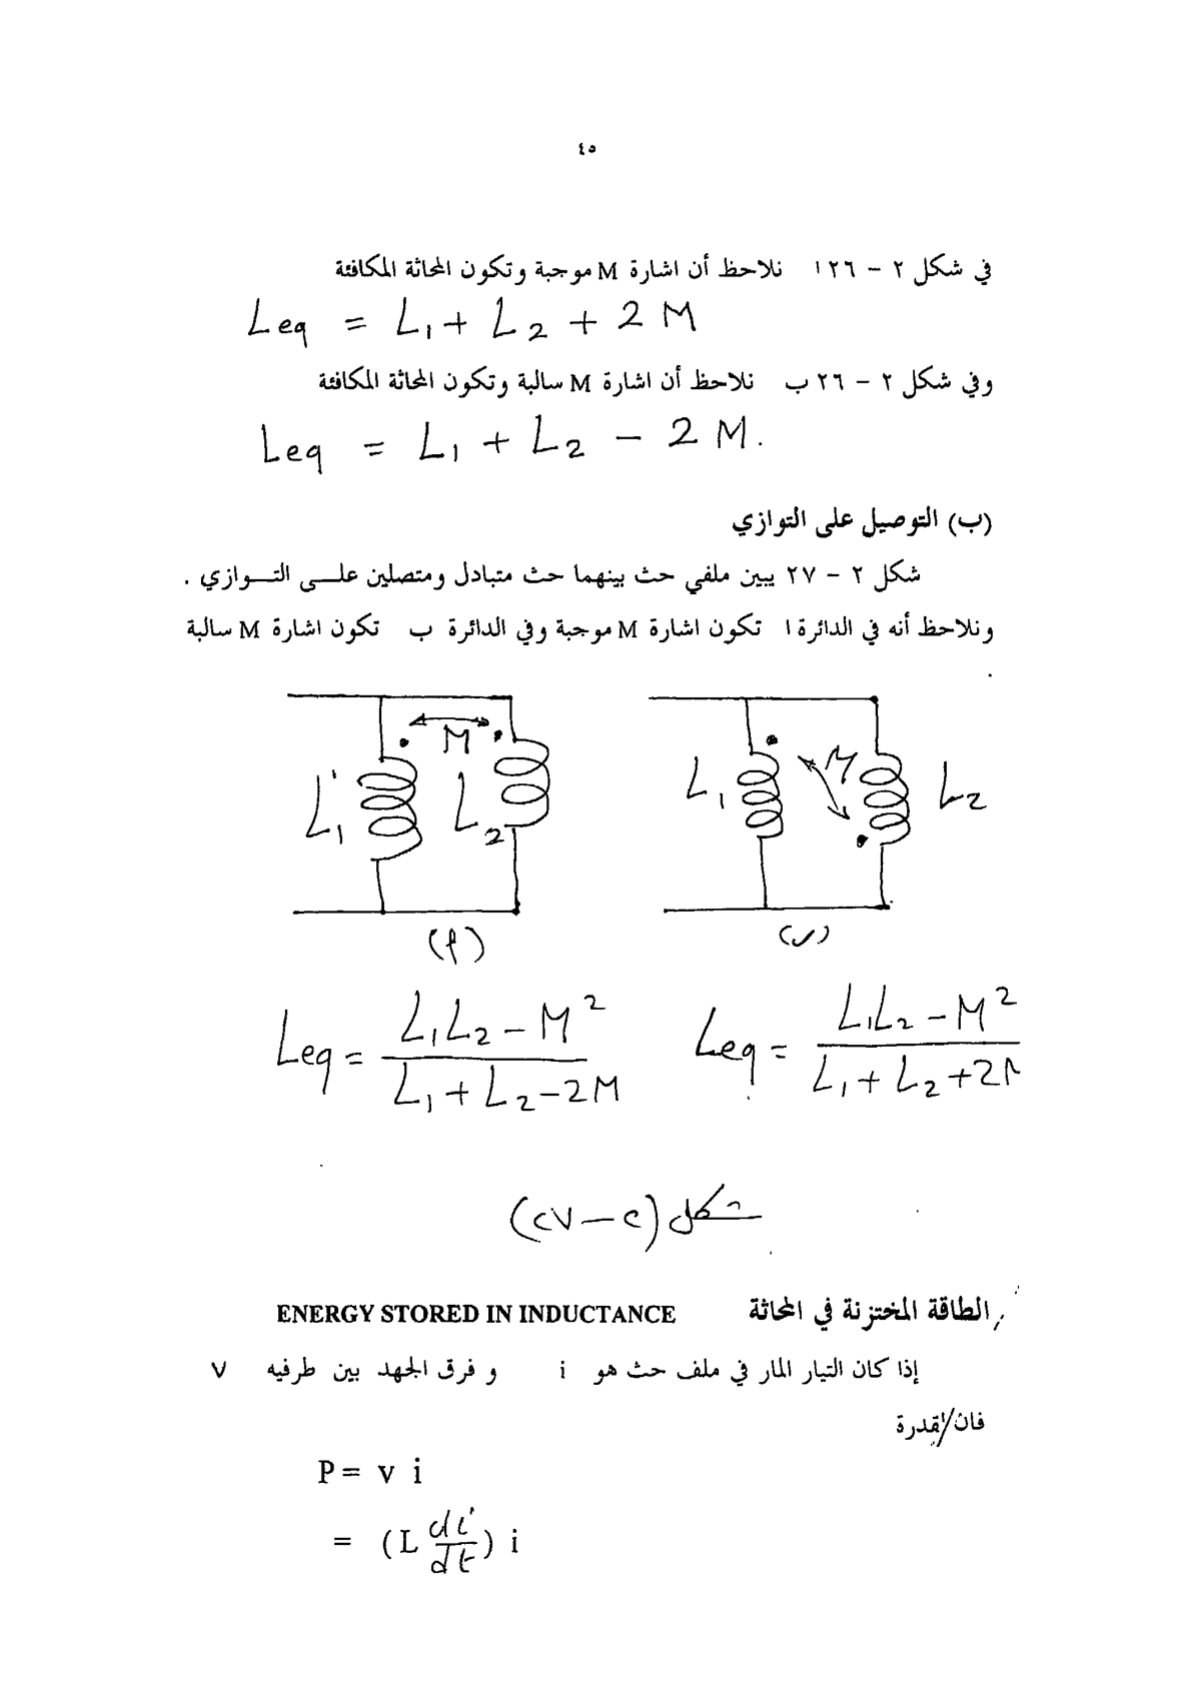 ٤٥
في شكل ٢ – ٢٦ ا نلاحظ أن اشارة M موجبة وتكون المحاثة المكافئة
Leq = L₁ + L₂ + 2 M
وفي شكل ٢ – ٢٦ ب نلاحظ أن اشارة M سالبة وتكون المحاثة المكافئة
Leq = L₁ + L₂ – 2 M.
(ب) التوصيل على التوازي
شكل ٢ – ٢٧ يبين ملفي حث بينهما حث متبادل ومتصلين علـــى التـــوازي .
ونلاحظ أنه في الدائرة ا تكون اشارة M موجبة وفي الدائرة ب تكون اشارة M سالبة
.
L₁ M L₂
L₁ M L₂
(أ)
(ب)
Leq = (L₁L₂ – M²) / (L₁ + L₂ – 2M)
Leq = (L₁L₂ – M²) / (L₁ + L₂ + 2M
شكل (٢ – ٢٧)
الطاقة المختزنة في المحاثة ENERGY STORED IN INDUCTANCE
إذا كان التيار المار في ملف حث هو i و فرق الجهد بين طرفيه v
فان القدرة
P = v i
= (L di/dt) i